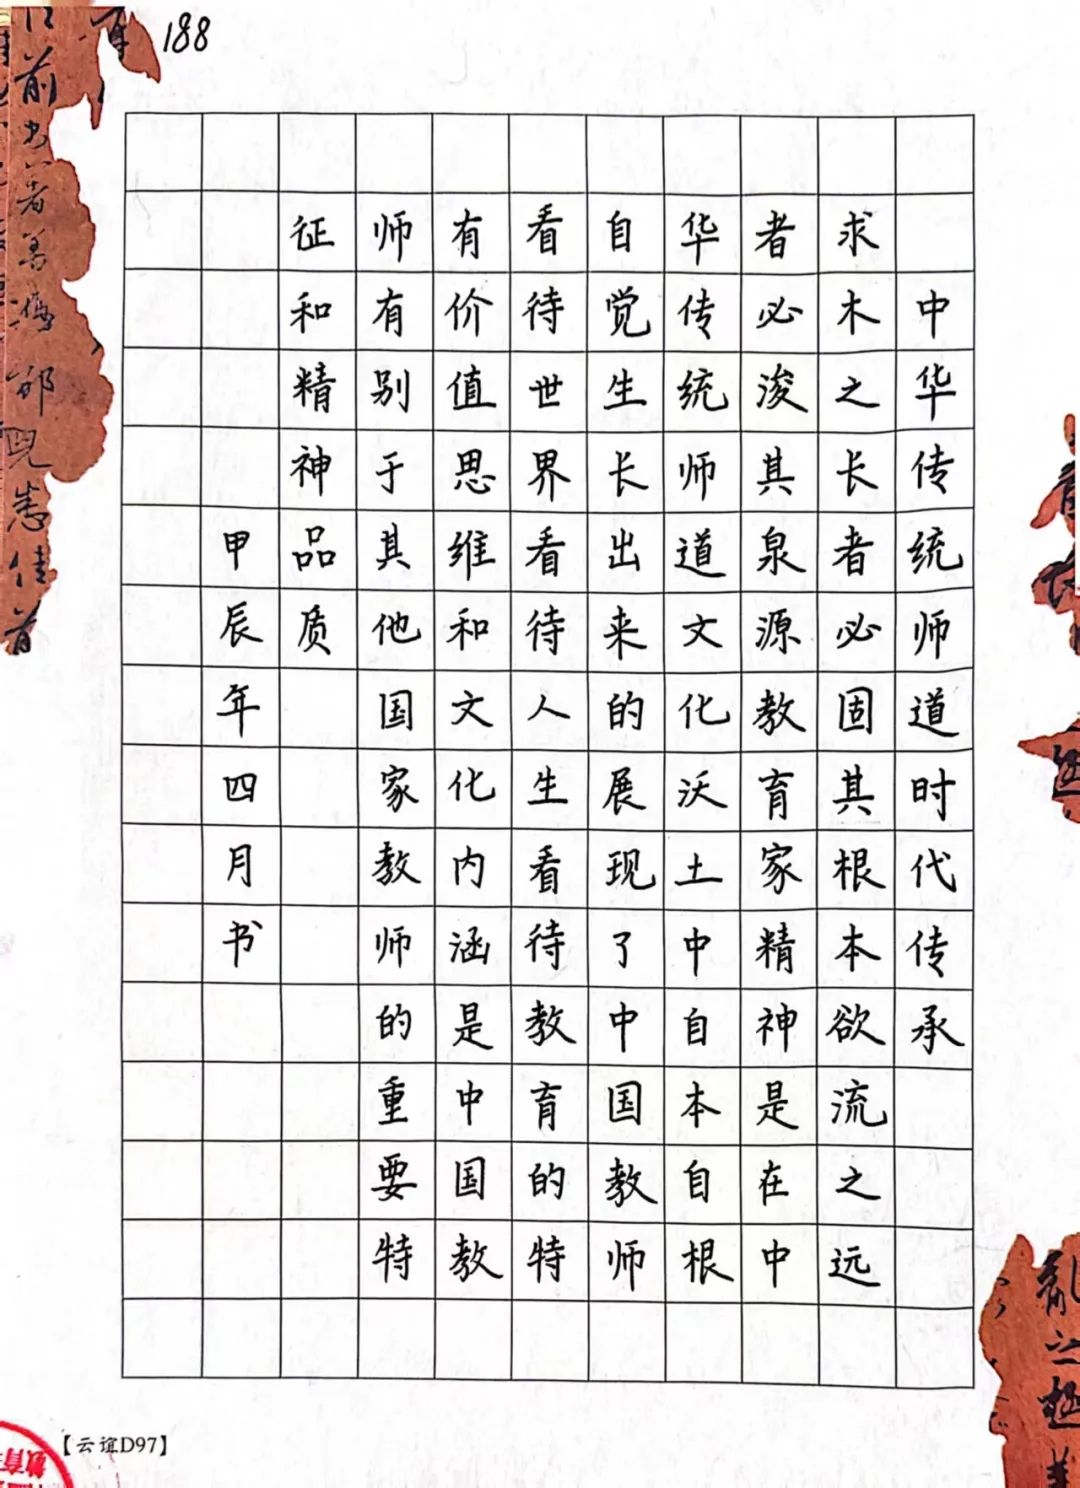 188
中华传统师道时代传承
求木之长者必固其根本欲流之远
者必浚其泉源教育家精神是在中
华传统师道文化沃土中自本自根
自觉生长出来的展现了中国教师
看待世界看待人生看待教育的特
有价值思维和文化内涵是中国教
师有别于其他国家教师的重要特
征和精神品质
甲辰年四月书
【云谊D97】
教育